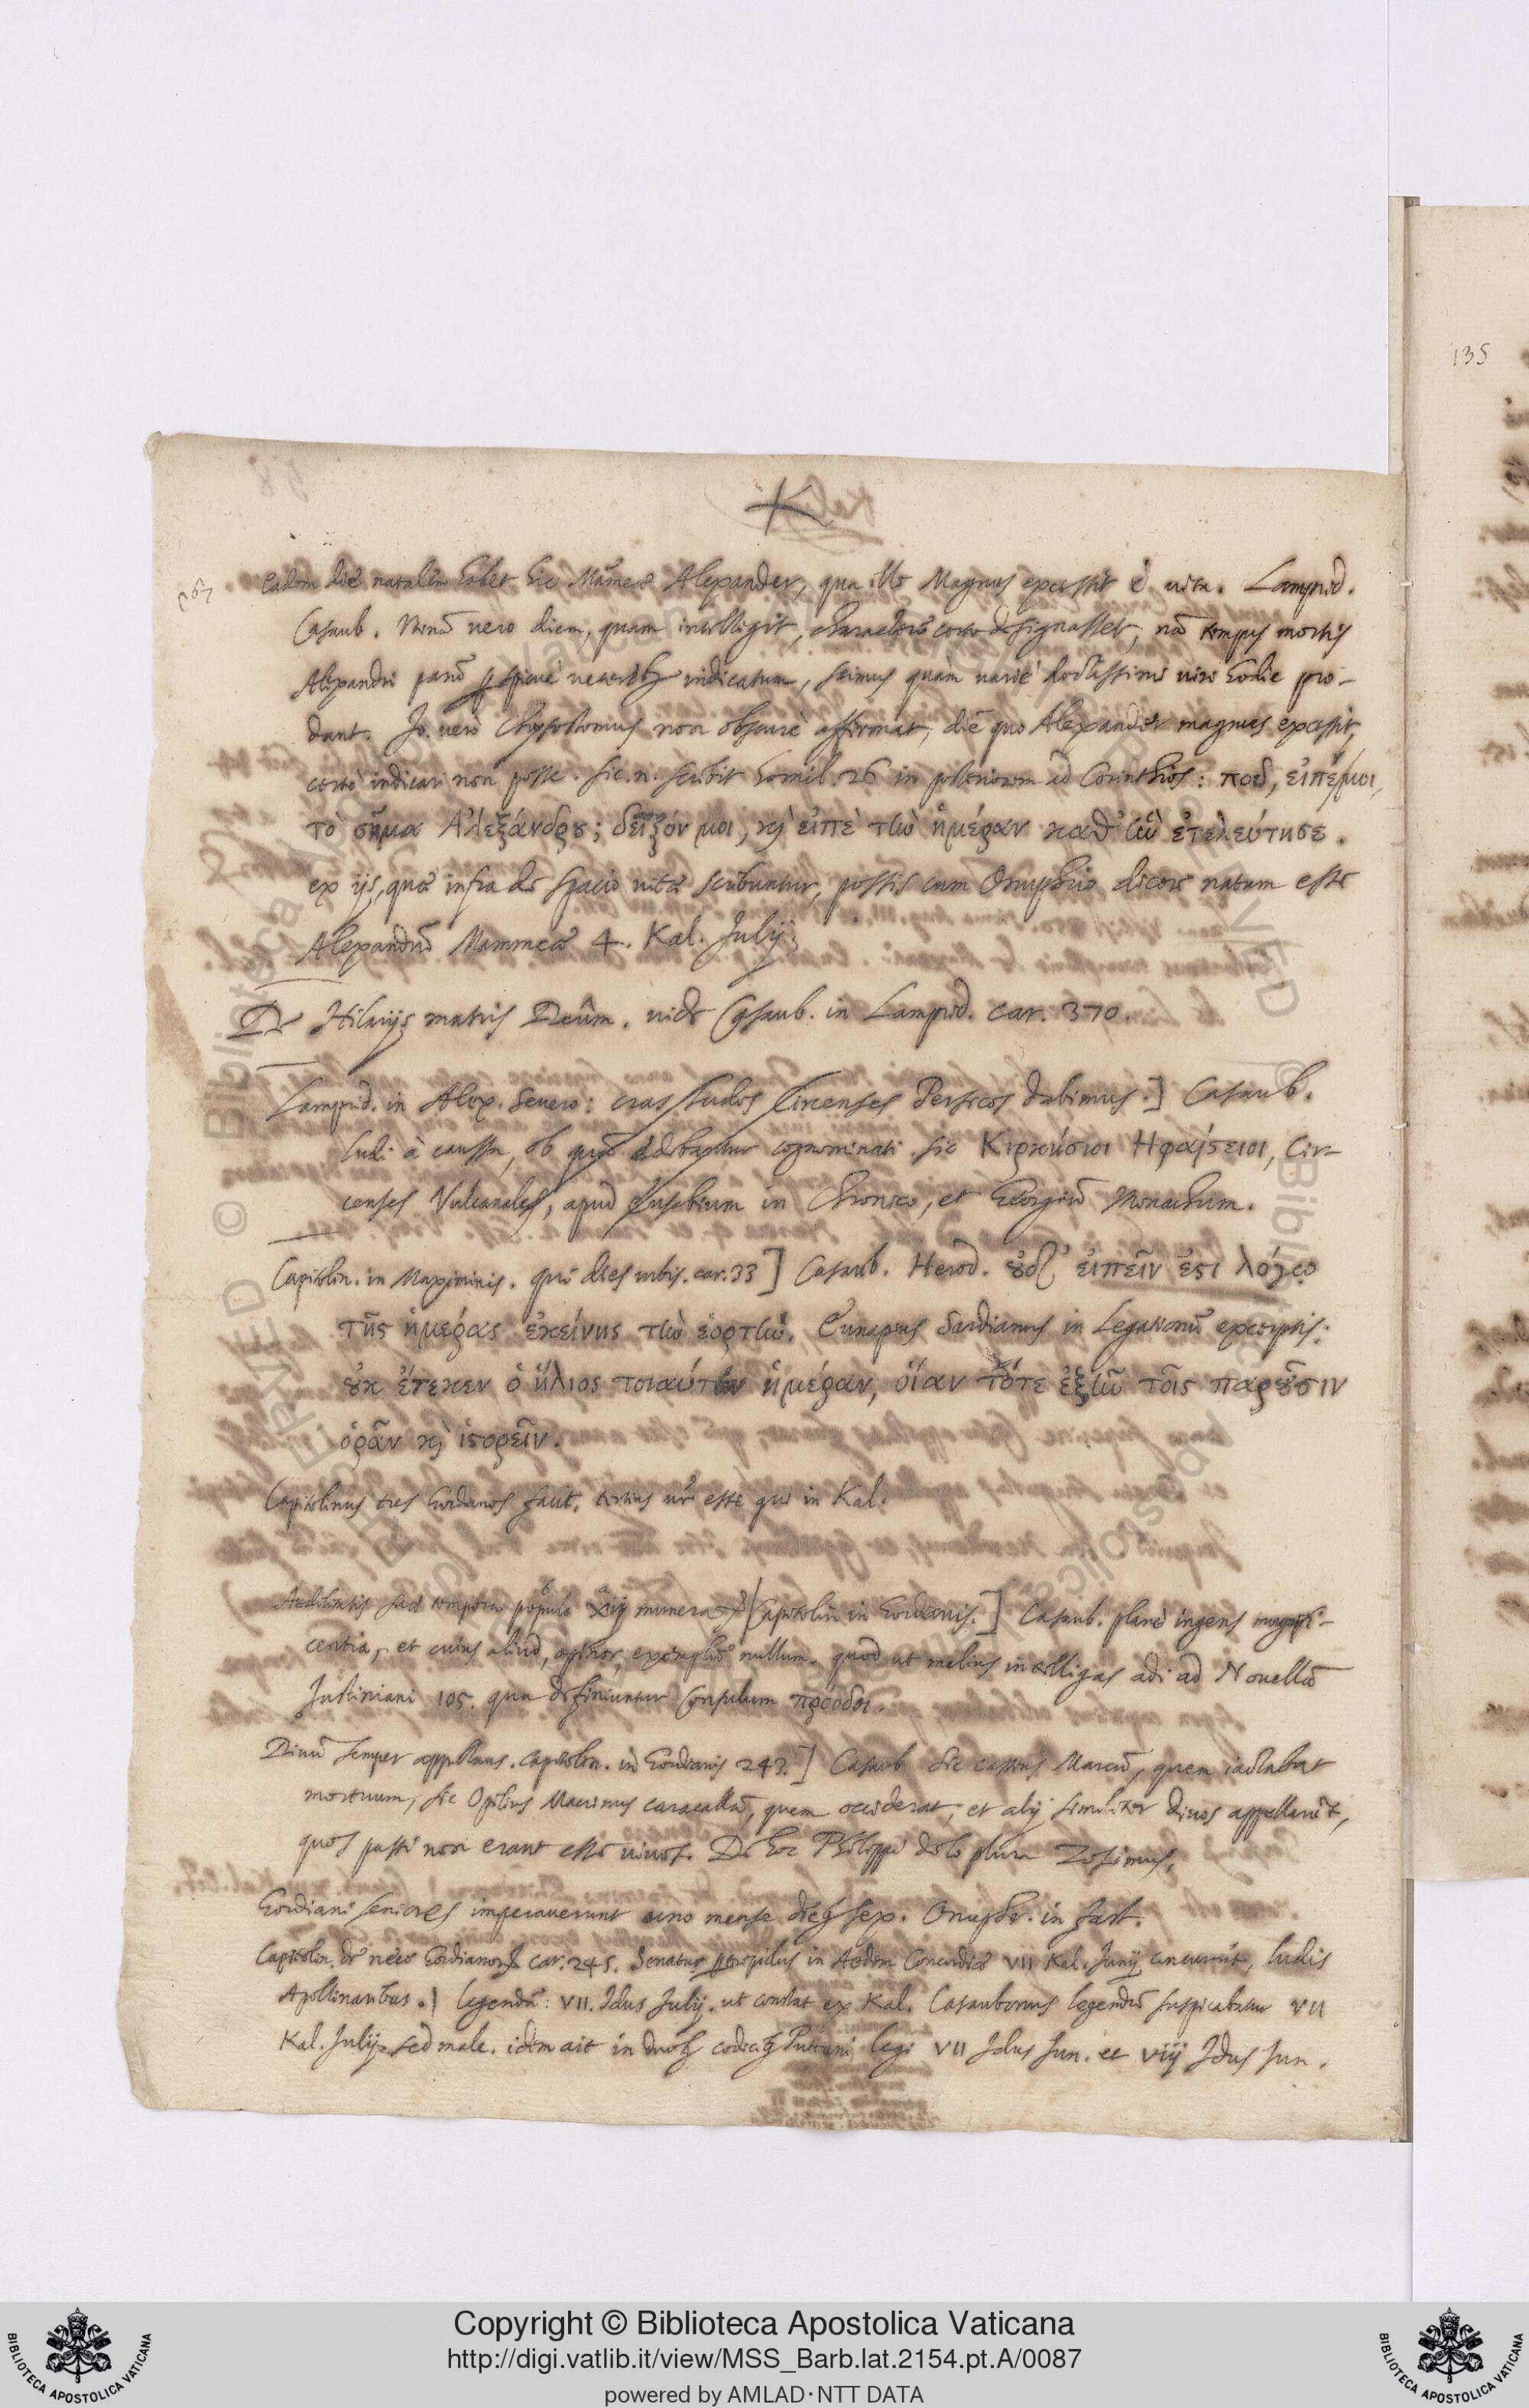 K
eadem die natalem habet hic Mameae Alexander, qua ille Magnus excessit è vita. Lamprid.
Casaub. Utinā vero diem, quam intelligit, charactere certo designasset, nā tempus mortis
Alexandri parū perspicuè veteribus indicatum, scimus quàm variè doctissimi viri hodie pro-
dant. Jo. verò Chrysostomus non obscurè affirmat, diē quo Alexander magnus excessit,
certò indicari non posse. sic.n. scribit homil. 26 in posteriorem ad Corinthios: ποῦ, εἰπέ μοι,
τὸ σῆμα Αλεξάνδρου; δεῖξόν μοι, καὶ εἰπὲ τὴν ἡμέραν καθ᾽ ἣν ἐτελεύτησε.
ex ijs, quae infra de spacio vitae scribuntur, possis cum Onuphrio dicere natum esse
Alexandrū Mammeae 4. Kal. Julij.
De Hilarijs matris Deûm. vide Casaub. in Lamprid. car. 370.
Lamprid. in Alex. Severo: cras ludos Circenses Persicos dabimus.] Casaub.
ludi à caussa, ob quā edebantur cognominati. sic Κιρκήσιοι Ηφαίστειοι, Cir-
censes Vulcanales, apud Eusebium in Chronico, et Georgiū Monachum.
Capitolin. in Maximinis. qui dies urbis. car. 33] Casaub. Herod. οὐδ᾽ εἰπεῖν ἔστι λόγῳ
τῆς ἡμέρας ἐκείνης τὴν ἑορτὴν. Eunapius Sardianus in Legationū excerptis:
οὐκ ἔτεκεν ὁ ἥλιος τοιαύτην ἡμέραν, οἵαν τότε ἐξῆν τοῖς παροῦσιν
ὁρᾶν καὶ ἱστορεῖν.
Capitolinus tres Gordianos facit, tertius vr̄ esse qui in Kal.
Aedilitatis suae tempora populo xij munera Capitolin in Gordianis.] Casaub. planè ingens magnifi-
centia, et cuius aliud, opinor, exemplū nullum. quod ut melius intelligas adi ad Novellā
Justiniani 105. qua definiuntur Consulum πρόοδοι.
Divū semper appellans. Capitolin. in Gordianis 243.] Casaub sic Cassius Marcū, quem iactabat
mortuum, sic Opilius Macrinus Caracallā, quem occiderat, et alij similiter divos appellarūt,
quos passi non erant esse vivos. De hoc Philippi dolo plura Zosimus.
Gordiani seniores imperaverunt uno mense diebus sex. Onuphr. in fast.
Capitolin. de nece Gordianorum car. 245. Senatus pertrepidus in Aedem Concordiae VII Kal. Junij concurrit, ludis
Apollinaribus.] legendū: VII. Idus Julij. ut constat ex Kal. Casaubonus legendū suspicabatur VII
Kal. Julij. sed male. idem ait in duobus codicibus Puteani legi VII Idus Jun. et viij Idus Jun.
135
Copyright © Biblioteca Apostolica Vaticana
http://digi.vatlib.it/view/MSS_Barb.lat.2154.pt.A/0087
powered by AMLAD·NTT DATA